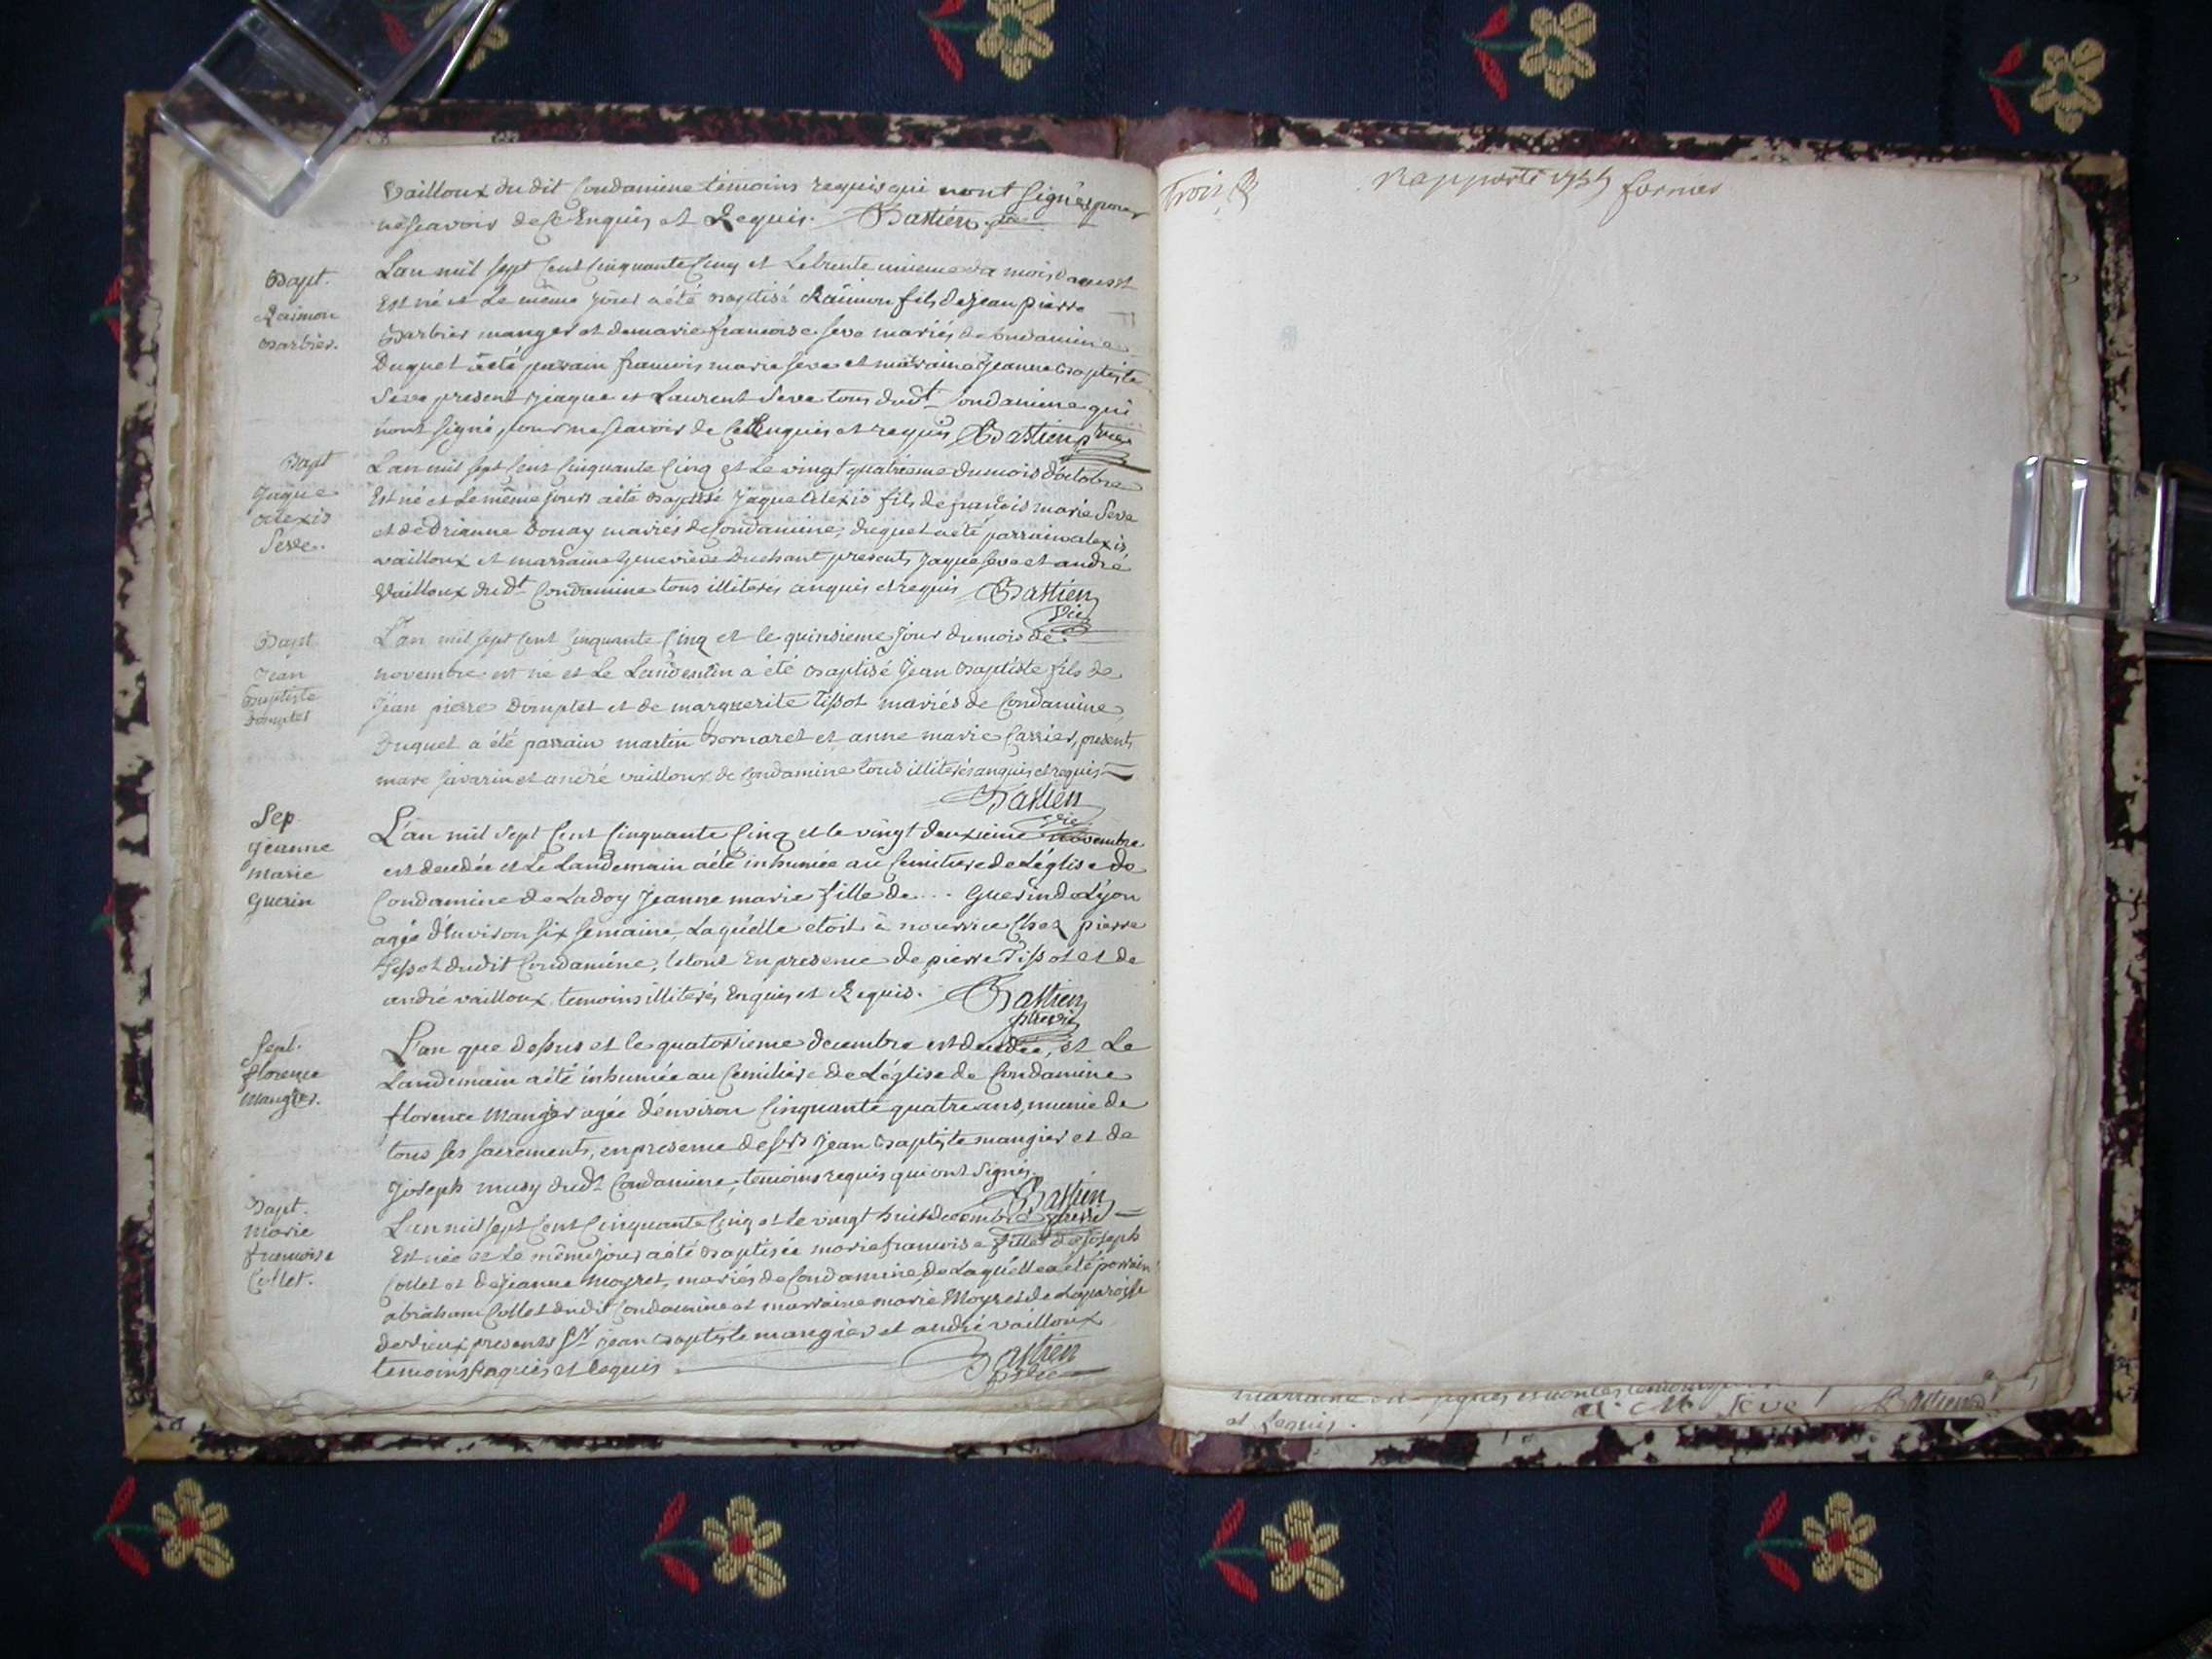 Vailloux du dit Condamine témoins requis qui nont signés pour
ne scavoir de ce Enquis et Requis. Bastien vic
Bapt.
Raimon
Barbier.
L'an mil sept cent cinquante cinq et le trente unieme du mois d'aoust
Est né et le même jour a été baptisé Raimon fils de jean pierre
Barbier manger et de marie francoise seve mariés de Condamine
Duquel a été parain francois marie seve et maraine jeanne baptiste
Seve present jaque et Laurent Seve tous dudt Condamine qui
n'ont signé pour ne scavoir de ce Enquis et requis Bastien p vic
Bapt
Jaque
Alexis
Seve.
L'an mil sept cent cinquante cinq et le vingt quatrieme du mois d'octobre
Est né et le même jours a été baptisé jaque Alexis fils de francois marie Seve
et de Drianne Donay mariés de Condamine, duquel a été parrain alexis
vailloux et marraine Genevieve Duchant presents Jaque seve et andré
Vailloux dudt Condamine tous illiterés anquis et requis Bastien
Vic
Bapt
Jean
Baptiste
Domptet
L'an mil sept cent cinquante cinq et le quinsieme jour du mois de
novembre est né et Le Landemin a été Baptisé Jean Baptiste fils de
Jean pierre Domptet et de marguerite Tissot mariés de Condamine,
Duquel a été parrain martin Bornaret et anne marie Carrier, presents
marc savarin et andré vailloux de Condamine tous illiterés anquis et requis
Bastien
vic
Sep.
Jeanne
marie
Guerin
L'an mil sept cent cinquante cinq et le vingt deuxieme novembre
est decedée et Le Landemain a été inhumée au Cemitiere de L'église de
Condamine de Ladoy Jeanne marie fille de ... Guerin de Lyon
agée d'Environ six semaine, Laquelle étoit à nourrice Chez pierre
Tissot dudit Condamine, le tout En presence de pierre Tissot et de
andré vailloux temoins illiterés Enquis et Requis. Bastien
ptre vic
Sept.
florence
Mangier.
L'an que dessus et le quatorsieme decembre est decedée, et Le
Landemain a été inhumée au Cemitiere de L'église de Condamine
florence Mangier agée d'environ cinquante quatre ans, munie de
tous ses sacrements, en presence de srs Jean Baptiste mangier et de
Joseph musy dudt Condamine, temoins requis qui ont signés.
Bastien
Bapt.
Marie
francoise
Collet.
L'an mil sept cent cinquante cinq et le vingt huit decembre
Est née et Le même jour a été Baptisée marie francoise fille de joseph
Collet et de jeanne Moyret, mariés de Condamine, de Laquelle a été parrain
abraham Collet dudit Condamine et marraine marie Moyret de La paroisse
de vieux presents sr jean Baptiste mangier et andré vailloux
temoins Enquis et Requis. Bastien
p vic
Trois
Rapporté fornier
marraine
et Requis. Seve Bastien